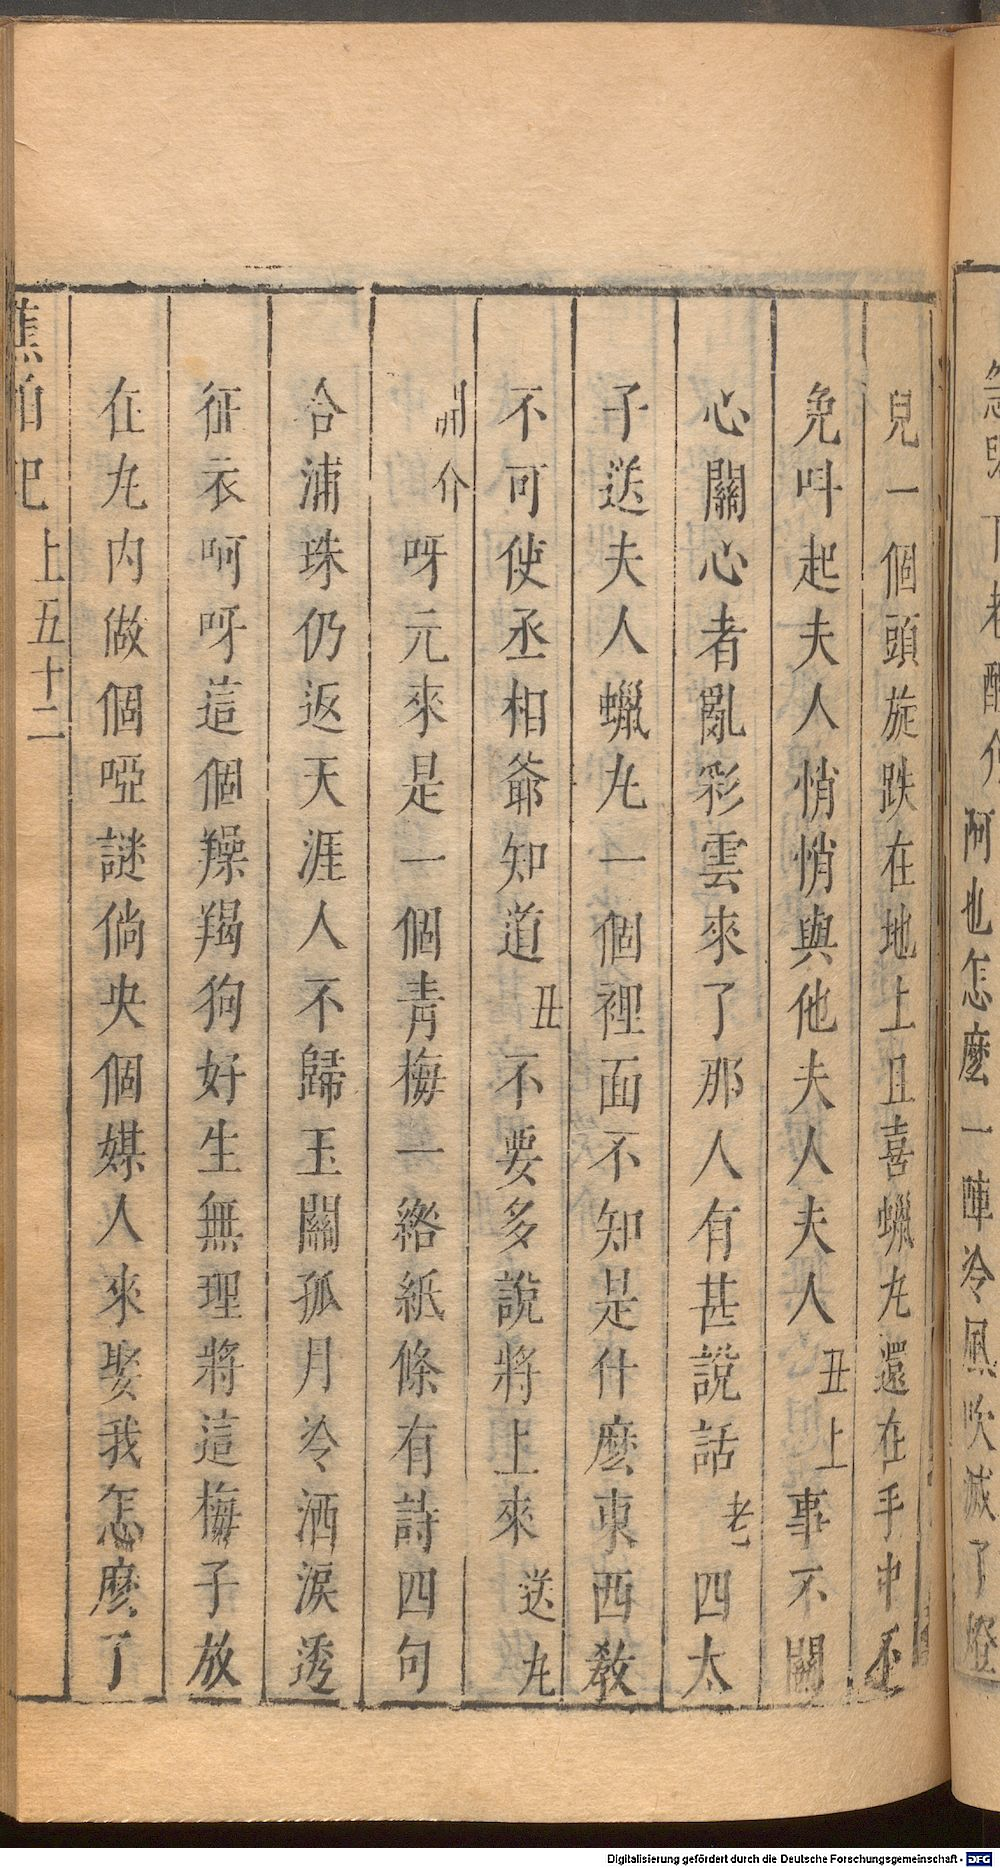 阿也怎麼一陣冷風吹滅了燈
兒一個頭旋跌在地上且喜蠟丸還在手中不
免呌起夫人悄悄與他夫人夫人丑上事不關
心關心者亂彩雲來了那人有甚說話老四太
子送夫人蠟丸一個裡面不知是什麽東西敎
不可使丞相爺知道丑不要多說將上來送丸
開介呀元來是一個青梅一綹紙條有詩四句
合浦珠仍返天涯人不歸玉關孤月冷洒淚透
征衣呵呀這個羶羯狗好生無理將這梅子放
在丸内做個啞謎倘央個媒人來娶我怎麽了
蕉帕記 上五十二
Digitalisierung gefördert durch die Deutsche Forschungsgemeinschaft - DFG